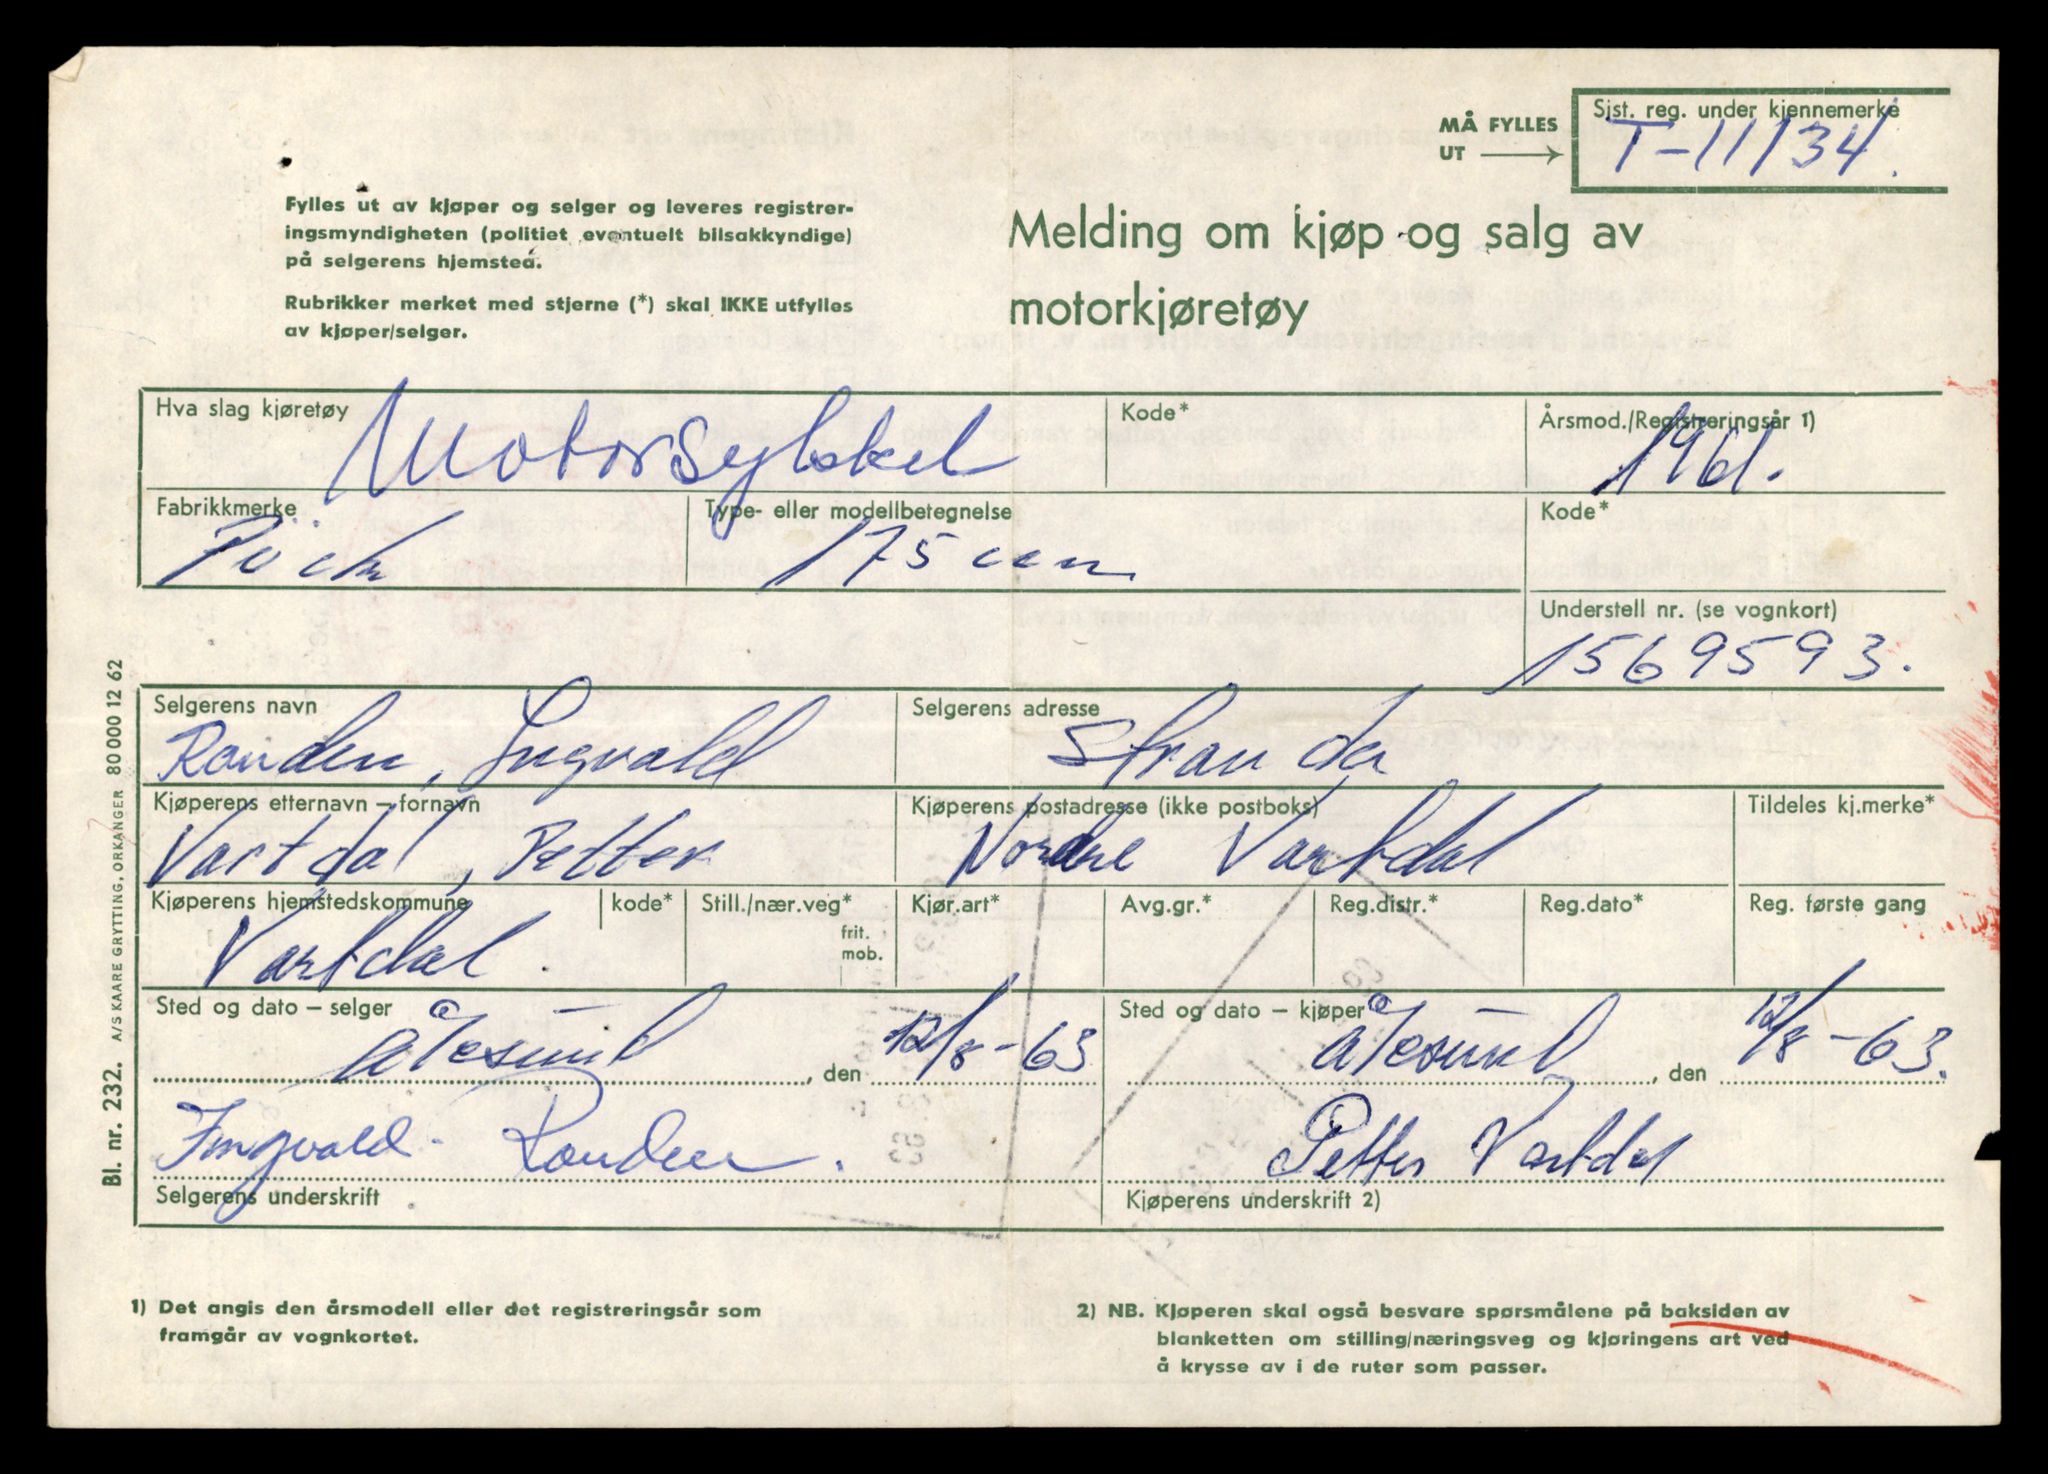 MÅ FYLLES UT
Sist. reg. under kjennemerke
T-11134.
Fylles ut av kjøper og selger og leveres registrer-
ingsmyndigheten (politiet eventuelt bilsakkyndige)
på selgerens hjemsted.
Rubrikker merket med stjerne (*) skal IKKE utfylles
av kjøper/selger.
Melding om kjøp og salg av
motorkjøretøy
Hva slag kjøretøy Kode* Årsmod./Registreringsår 1)
Motorsylskel 1961.
Fabrikkmerke Type- eller modellbetegnelse Kode*
Püch 175 ccm
Understell nr. (se vognkort)
1569593.
Selgerens navn Selgerens adresse
Ronden, Ingvald Stranda
Kjøperens etternavn – fornavn Kjøperens postadresse (ikke postboks) Tildeles kj.merke*
Vartdal, Petter Nordre Vartdal
Kjøperens hjemstedskommune kode* Still./nær.veg* frit. mob. Kjør.art* Avg.gr.* Reg.distr.* Reg.dato* Reg. første gang
Vartdal.
Sted og dato – selger Sted og dato – kjøper
Ålesund, den 12/8-63 Ålesund, den 12/8-63.
Ingvald Ronden. Petter Vartdal
Selgerens underskrift Kjøperens underskrift 2)
1) Det angis den årsmodell eller det registreringsår som
framgår av vognkortet.
2) NB. Kjøperen skal også besvare spørsmålene på baksiden av
blanketten om stilling/næringsveg og kjøringens art ved
å krysse av i de ruter som passer.
Bl. nr. 232. A/S KAARE GRYTTING, ORKANGER 80 000 12 62